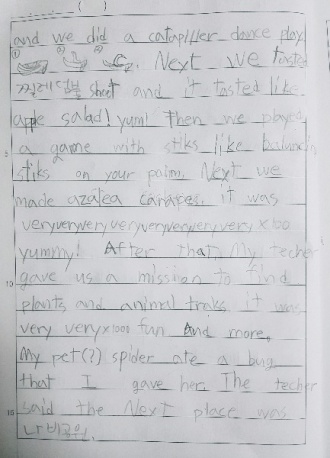 ( )
and we did a catapiller dance play
① ② ③ Next we tasted
찔레 shoot and it tasted like
apple salad! yum! Then we played
a game with stiks like balancing
stiks on your palm. Next we
made azalea canapes. it was
veryveryveryveryveryveryveryvery x100
yummy! After that My techer
gave us a mission to find
plants and animal traks it was
very very x1000 fun And more,
My pet(?) spider ate a bug
that I gave her The techer
said the Next place was
나비공원.
5
10
15